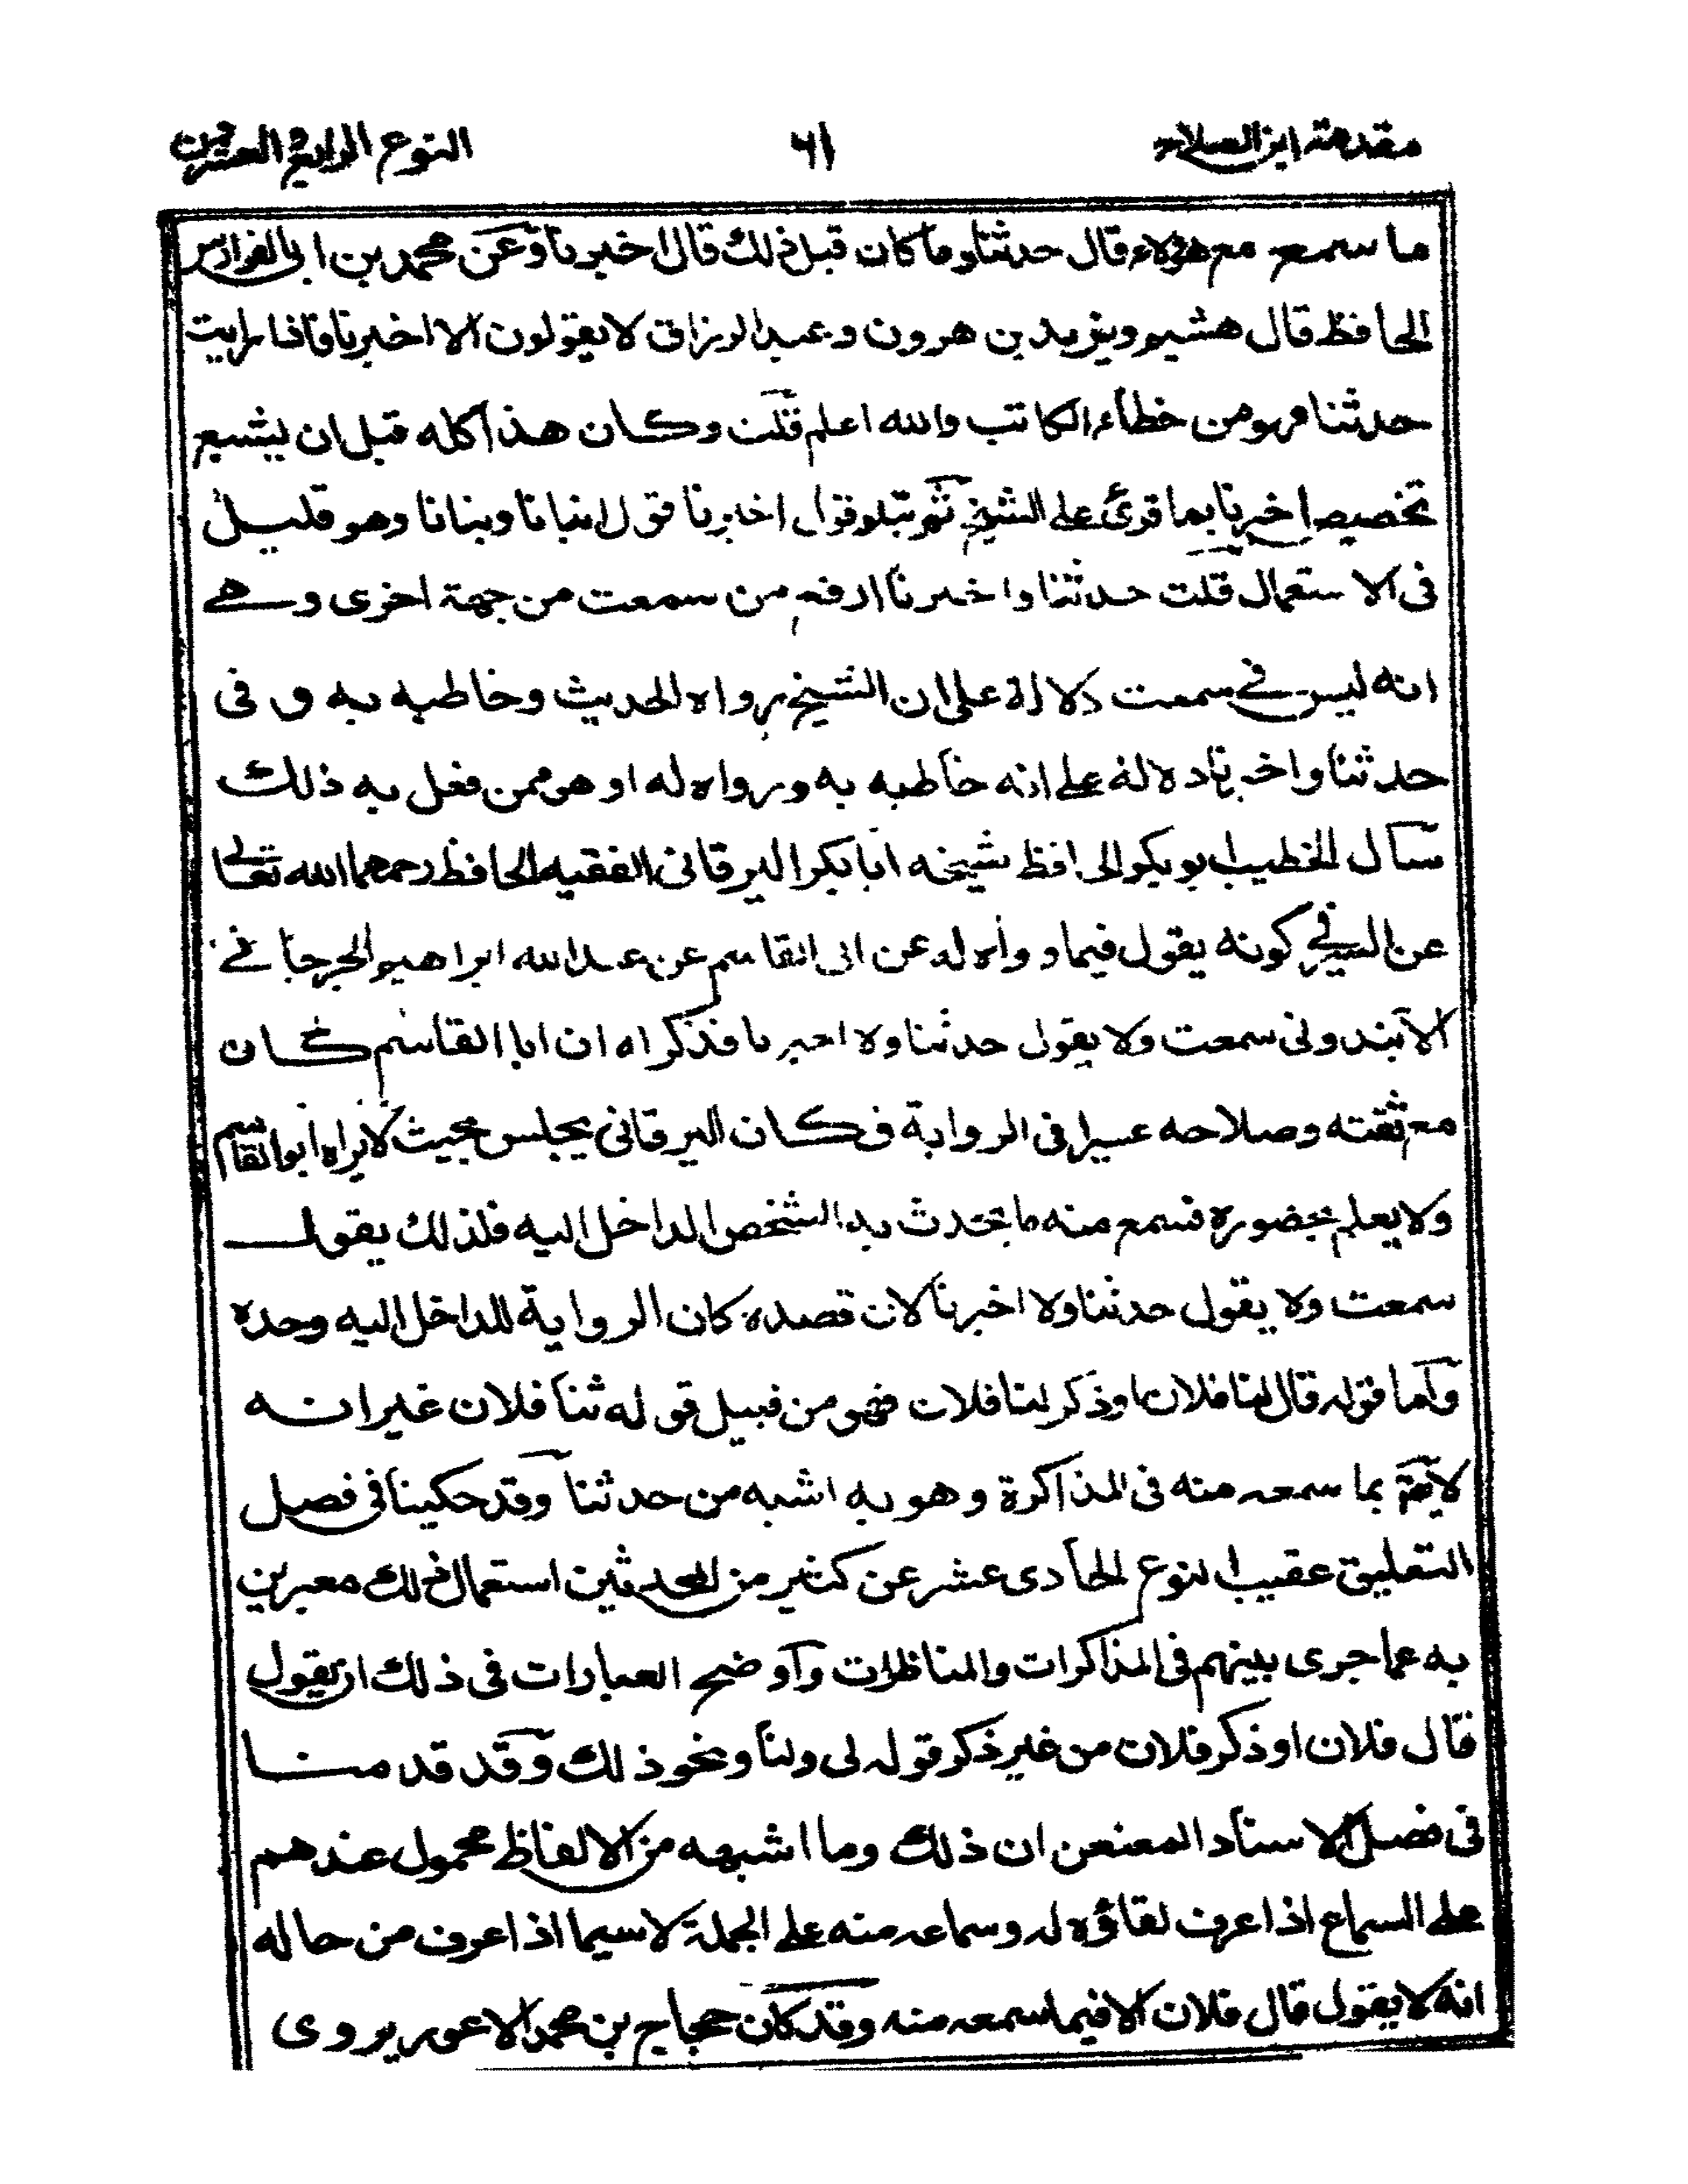 مقدمة ابن الصلاح ٦١ النوع الرابع والعشرين
ما سمع مع هؤلاء قال حدثنا وما كان قبل ذلك قال اخبرنا وعن محمد بن ابى الفوارس
الحافظ قال هشيم ويزيد بن هرون وعبد الرزاق لا يقولون الا اخبرنا فاذا رايت
حدثنا فهو من خطاء الكاتب والله اعلم قلت وكان هذا كله قبل ان يشيع
تخصيص اخبرنا بما قرئ على الشيخ ثم يتلو قول اخبرنا قول انبانا ونبانا وهو قليل
فى الاستعمال قلت حدثنا واخبرنا ارفع من سمعت من جهة اخرى وهے
انه ليس فے سمعت دلالة على ان الشيخ رواه الحديث وخاطبه به و فى
حدثنا واخبرنا دلالة على انه خاطبه به ورواه له او هو ممن فعل به ذلك
سأل الخطيب ابو بكر الحافظ شيخه ابا بكر البرقانى الفقيه الحافظ رحمهما الله تعالى
عن السر فے كونه يقول فيما رواه له عن ابى القاسم عن عبد الله ابراهيم الجرجانے
الآبندونى سمعت ولا يقول حدثنا ولا اخبرنا فذكر له ان ابا القاسم كان
مع ثقته وصلاحه عسرا فى الرواية فكان البرقانى يجلس بحيث لا يراه ابو القاسم
ولا يعلم بحضوره فسمع منه ما يتحدث به الشخص الداخل اليه فلذلك يقول
سمعت ولا يقول حدثنا ولا اخبرنا لان قصده كان الرواية للداخل اليه وحده
وأما قوله قال لنا فلان اوذكر لنا فلان فهو من قبيل قوله ثنا فلان غير انه
لائق بما سمعه منه فى المذاكرة وهو به اشبه من حدثنا وقد حكينا فى فصل
التعليق عقيب النوع الحادى عشر عن كثير من المحدثين استعمال ذلك معبرين
به عما جرى بينهم فى المذاكرات والمناظرات وأوضح العبارات فى ذلك ان يقول
قال فلان او ذكر فلان من غير ذكر قوله لى ولنا ونحو ذلك وقد قدمنا
فى فصل الاسناد المعنعن ان ذلك وما اشبهه من الالفاظ محمول عندهم
على السماع اذا عرف لقاؤه له وسماعه منه على الجملة لاسيما اذا عرف من حاله
انه لا يقول قال فلان الا فيما سمعه منه وقد كان حجاج بن محمد الاعور يروى